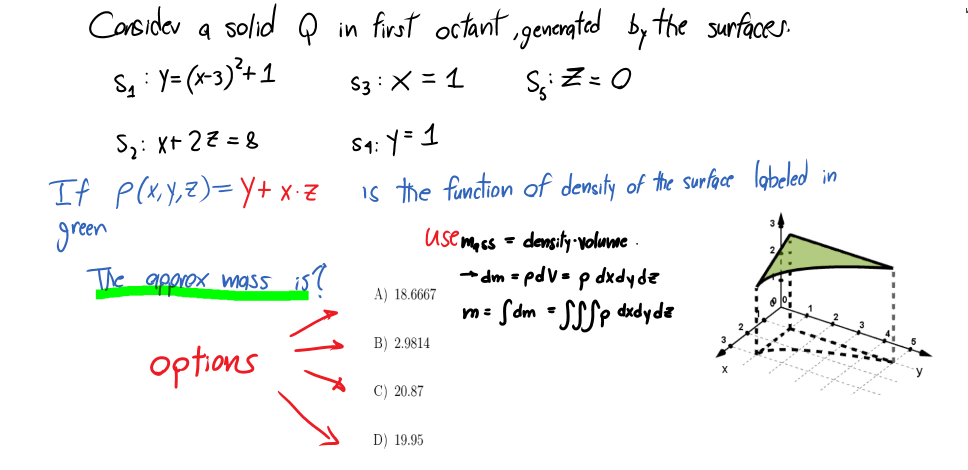 Consider a solid Q in first octant, generated by the surfaces.
S₁ : y=(x-3)²+1 S3 : x = 1 S₅: Z = 0
S₂: x+ 2z = 8 S4: y = 1
If ρ(x,y,z)= y+ x·z is the function of density of the surface labeled in
green
The approx mass is?
options
use mass = density·volume .
→dm = ρdV = ρ dxdydz
m = ∫dm = ∫∫∫ρ dxdydz
A) 18.6667
B) 2.9814
C) 20.87
D) 19.95
3
2
1
0 0
1 1
2 2
3 3
4
5
x y